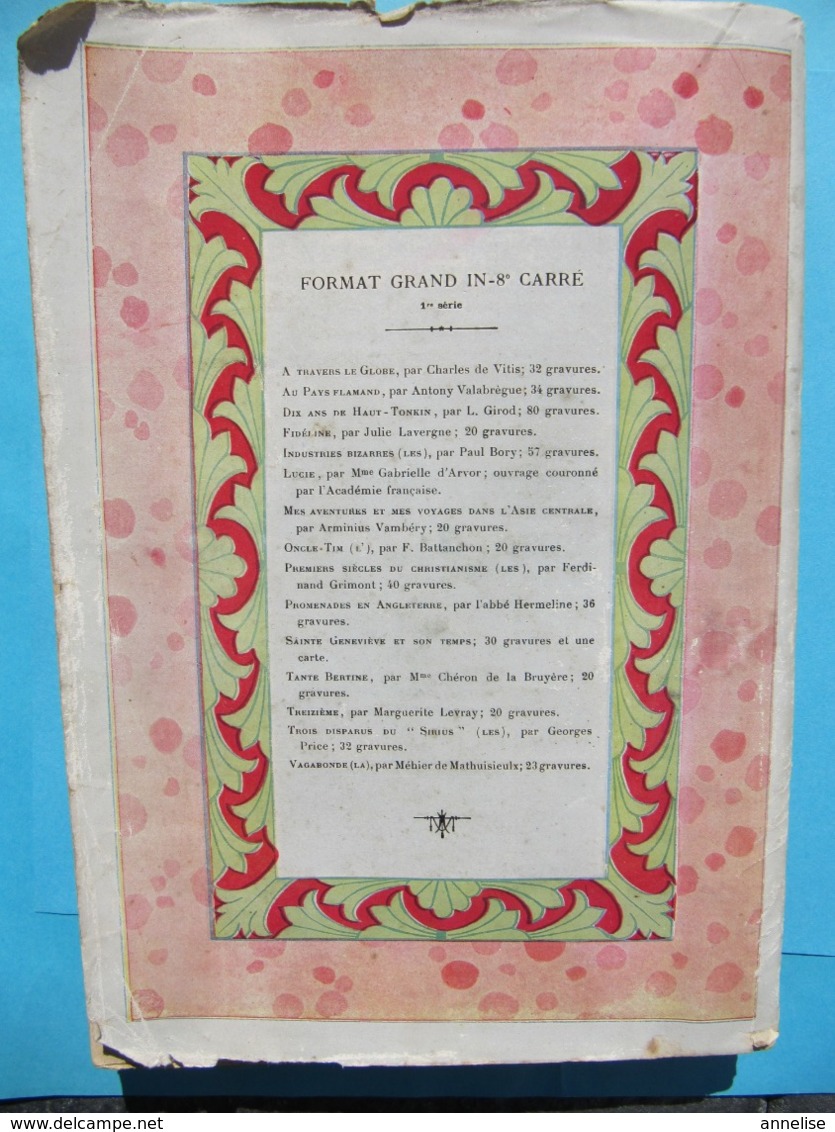 FORMAT GRAND IN-8° CARRÉ
1re série
A TRAVERS LE GLOBE, par Charles de Vitis; 32 gravures.
AU PAYS FLAMAND, par Antony Valabrègue; 34 gravures.
DIX ANS DE HAUT-TONKIN, par L. Girod; 80 gravures.
FIDÉLINE, par Julie Lavergne; 20 gravures.
INDUSTRIES BIZARRES (LES), par Paul Bory; 57 gravures.
LUCIE, par Mme Gabrielle d'Arvor; ouvrage couronné
par l'Académie française.
MES AVENTURES ET MES VOYAGES DANS L'ASIE CENTRALE,
par Arminius Vambéry; 20 gravures.
ONCLE-TIM (L'), par F. Battanchon; 20 gravures.
PREMIERS SIÈCLES DU CHRISTIANISME (LES), par Ferdi-
nand Grimont; 40 gravures.
PROMENADES EN ANGLETERRE, par l'abbé Hermeline; 36
gravures.
SAINTE GENEVIÈVE ET SON TEMPS; 30 gravures et une
carte.
TANTE BERTINE, par Mme Chéron de la Bruyère; 20
gravures.
TREIZIÈME, par Marguerite Levray; 20 gravures.
TROIS DISPARUS DU "SIRIUS" (LES), par Georges
Price; 32 gravures.
VAGABONDE (LA), par Méhier de Mathuisieulx; 23 gravures.
delcampe.net
annelise